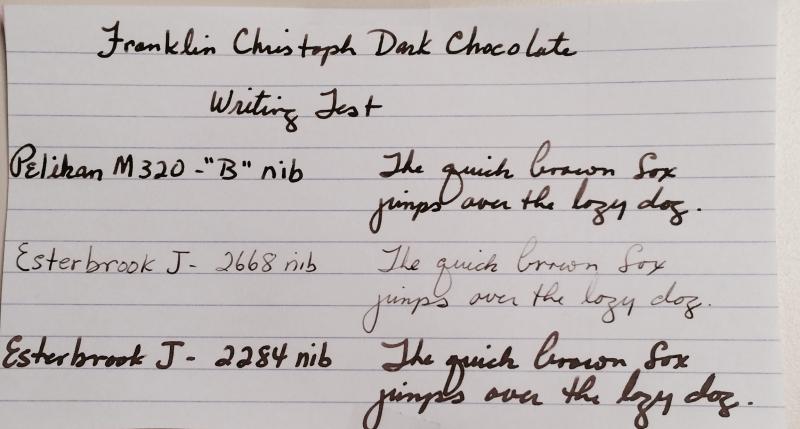 Franklin Christoph Dark Chocolate
Writing Test
Pelikan M320 - "B" nib
The quick brown fox
jumps over the lazy dog.
Esterbrook J - 2668 nib
The quick brown fox
jumps over the lazy dog.
Esterbrook J - 2284 nib
The quick brown fox
jumps over the lazy dog.